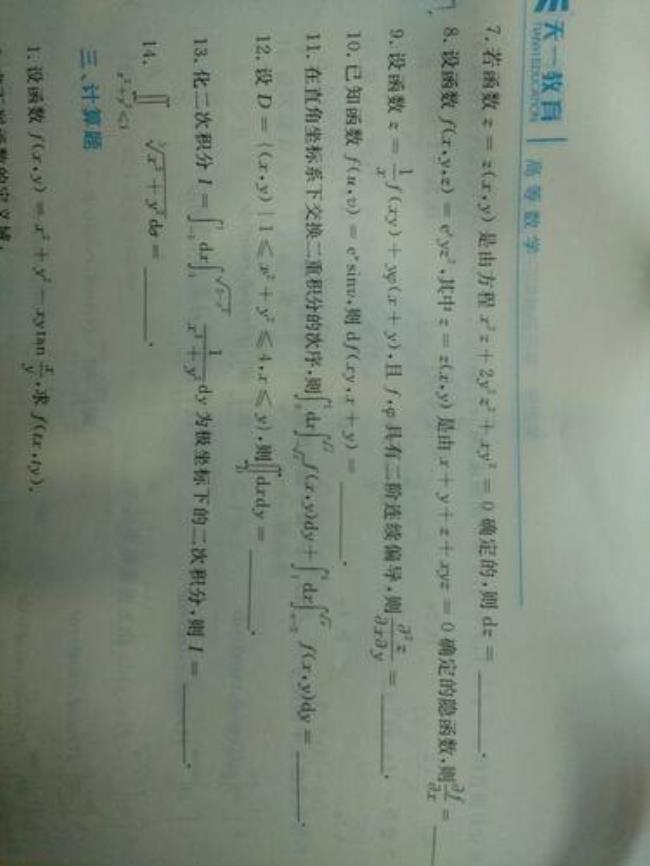 天一教育 | 高等数学
TIANYI EDUCATION
7. 若函数 z = z(x,y) 是由方程 x²z + 2y²z² + xy² = 0 确定的,则 dz = ______.
8. 设函数 f(x,y,z) = eˣyz²,其中 z = z(x,y) 是由 x + y + z + xyz = 0 确定的隐函数,则 ∂f/∂x = ______
9. 设函数 z = 1/x f(xy) + yφ(x + y),且 f,φ 具有二阶连续偏导,则 ∂²z/∂x∂y = ______.
10. 已知函数 f(u,v) = eᵘsinv,则 df(xy,x + y) = ______.
11. 在直角坐标系下交换二重积分的次序,则 f(x,y)dy + f(x,y)dy = ______.
12. 设 D = {(x,y) | 1 ≤ x² + y² ≤ 4, x ≤ y},则∬dxdy = ______.
13. 化二次积分 I = 1/(x² + y²) dy 为极坐标下的二次积分,则 I = ______.
14. ∬ ³√(x² + y²) dσ = ______.
x²+y²≤1
三、计算题
1. 设函数 f(x,y) = x² + y² − xytan x/y,求 f(tx,ty).